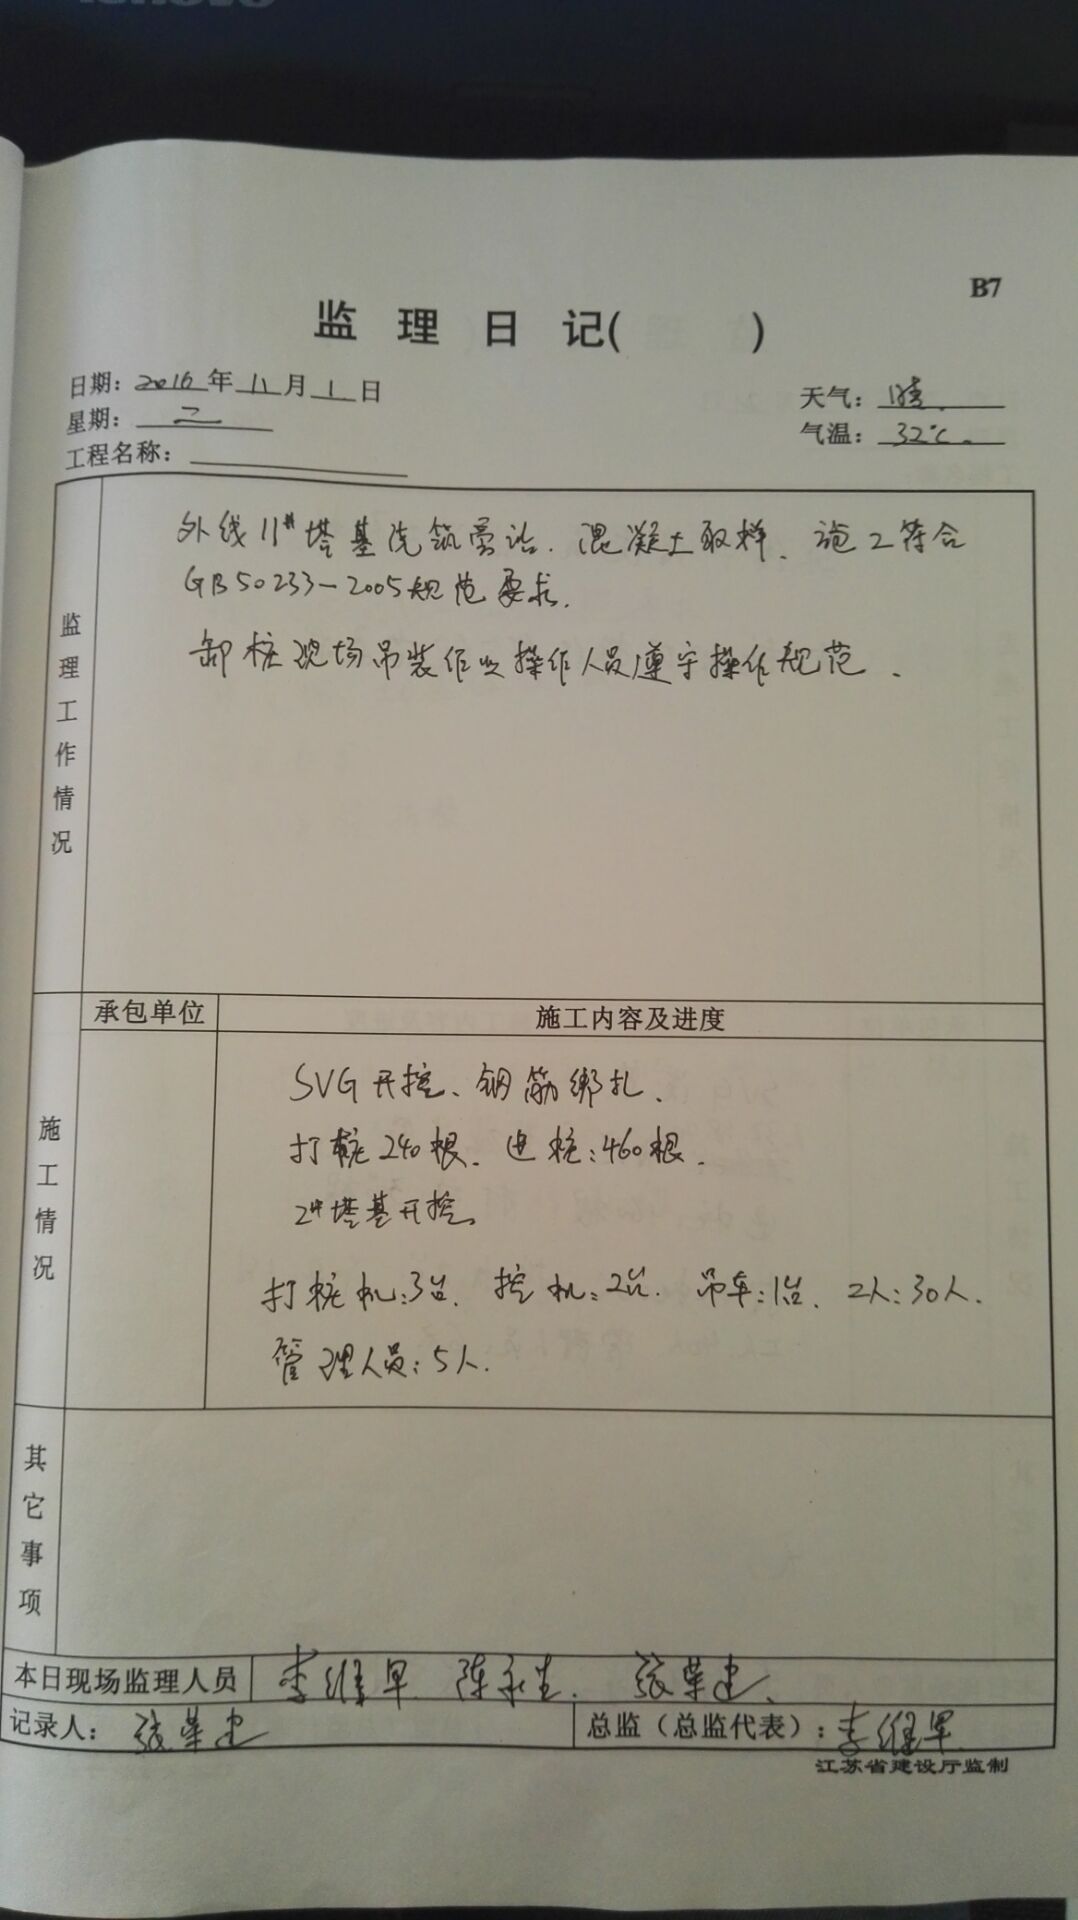 lenovo
B7
监 理 日 记(          )
日期: 2016 年 11 月 1 日
天气: 晴.
星期: 二
气温: 32℃.
工程名称:
监理工作情况
外线11#塔基浇筑旁站. 混凝土取样、施工符合
GB50233-2005规范要求.
卸桩现场吊装作业操作人员遵守操作规范.
承包单位
施工内容及进度
施工情况
SVG开挖、钢筋绑扎.
打桩240根. 进桩:460根.
2#塔基开挖.
打桩机:3台. 挖机:2台. 吊车:1台. 工人:30人.
管理人员:5人.
其它事项
本日现场监理人员 李维军 陈永生. 张荣忠.
记录人: 张荣忠
总监(总监代表): 李维军
江苏省建设厅监制